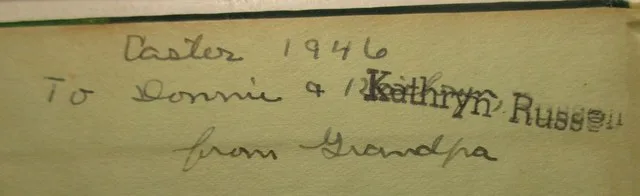 Easter 1946
To Donnie & Kathryn Russell
from Grandpa